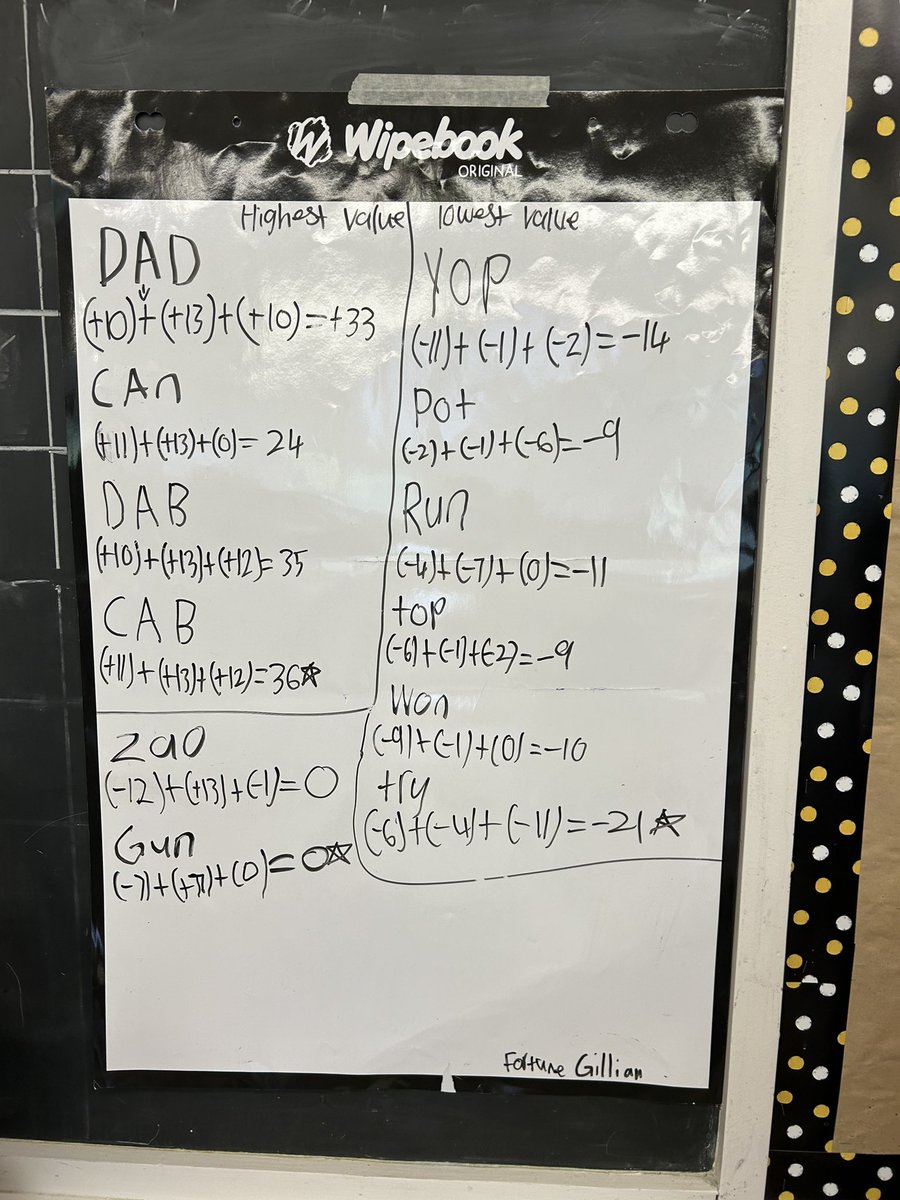 Wipebook
ORIGINAL
Highest Value
DAD
(+10)+(+13)+(+10)=+33
CAn
(+11)+(+13)+(0)= 24
DAB
(+10)+(+13)+(+12)=35
CAB
(+11)+(+13)+(+12)=36☆
zao
(-12)+(+13)+(-1)=0
Gun
(-7)+(+7)+(0)=0☆
lowest value
YOP
(-11)+(-1)+(-2)=-14
Pot
(-2)+(-1)+(-6)=-9
Run
(-4)+(-7)+(0)=-11
top
(-6)+(-1)+(-2)=-9
Won
(-9)+(-1)+(0)=-10
try
(-6)+(-4)+(-11)=-21☆
Fortune Gillian